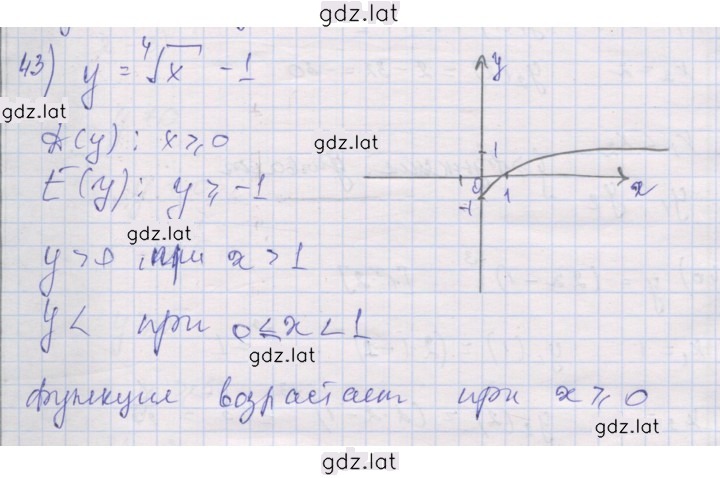 gdz.lat
43) y = ⁴√x - 1
gdz.lat
y
1
0
1
x
-1
gdz.lat
D(y) : x ≥ 0
E(y) : y ≥ -1
gdz.lat
y > 0 при x > 1
y < при 0 ≤ x < 1
gdz.lat
функция возрастает при x ≥ 0
gdz.lat
gdz.lat